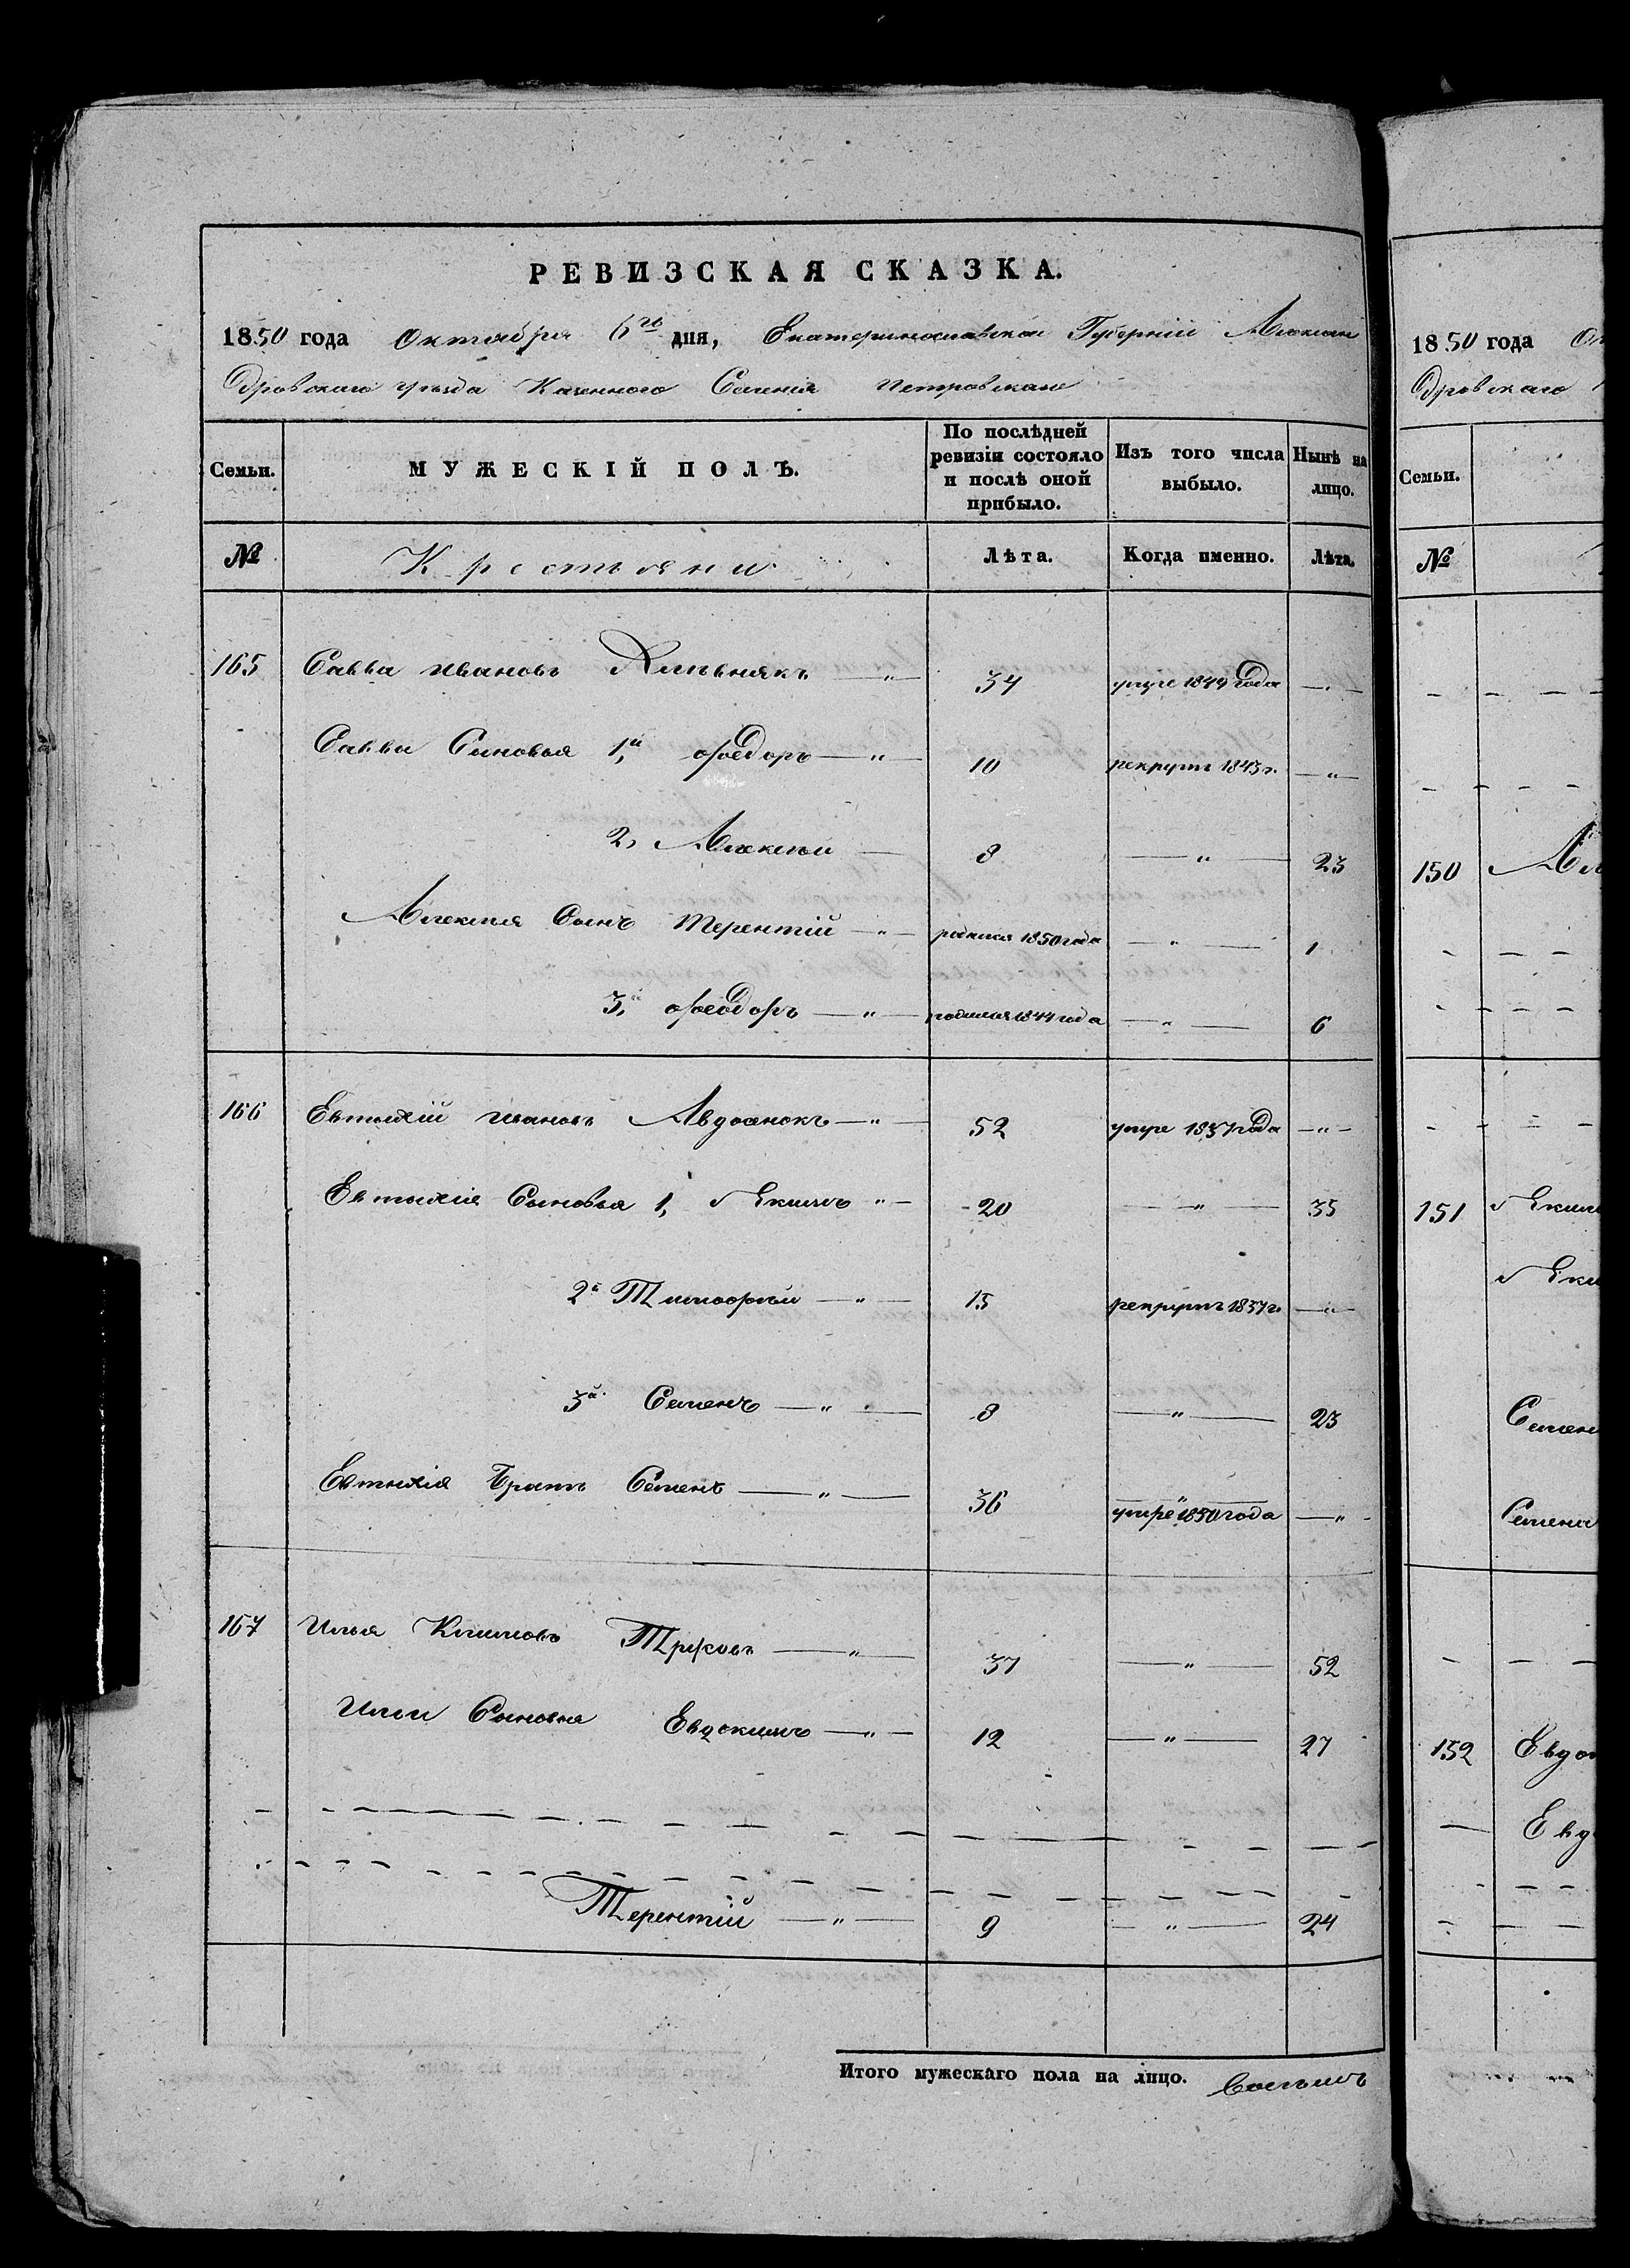 РЕВИЗСКАЯ СКАЗКА.
1850 года Октября 6го дня, Екатеринославской Губерніи Алексан
дровскаго уѣзда Казенного Селенія Петровскаго
Семьи. МУЖЕСКІЙ ПОЛЪ. По послѣдней ревизіи состояло и послѣ оной прибыло. Изъ того числа выбыло. Нынѣ на лицо.
№ Крестьяни Лѣта. Когда именно. Лѣта.
165 Савва Ивановъ 34 умре 1844 года —„—
Саввы Сыновья 1й Ѳеодоръ —„— 10 рекрутъ 1843 г. —„—
2, Алексѣй — 8 —„— 23
Алексѣя Сынъ Терентій —„— родился 1850 года —„— 1
3й Ѳеодоръ —„— родился 1844 года —„— 6
166 Евтихій Ивановъ Авдѣенокъ —„— 52 умре 1837 года —„—
Евтихія Сыновья 1, Якимъ „— 20 —„— 35
2й Тимоѳей —„— 15 рекрутъ 1837 г. —„—
3й Семенъ —„— 8 —„— 23
Евтихія Братъ Семенъ —„— 36 умре 1850 года —„—
167 Илья Климовъ —„— 37 —„— 52
Ильи Сыновья Евдокимъ —„— 12 —„— 27
Терентій —„— 9 —„— 24
Итого мужескаго пола на лицо. Восемь
1850 года
дровскаго
Семьи.
№
150
151 Яким
Яки
Семен
Семена
152 Евдо
Евд